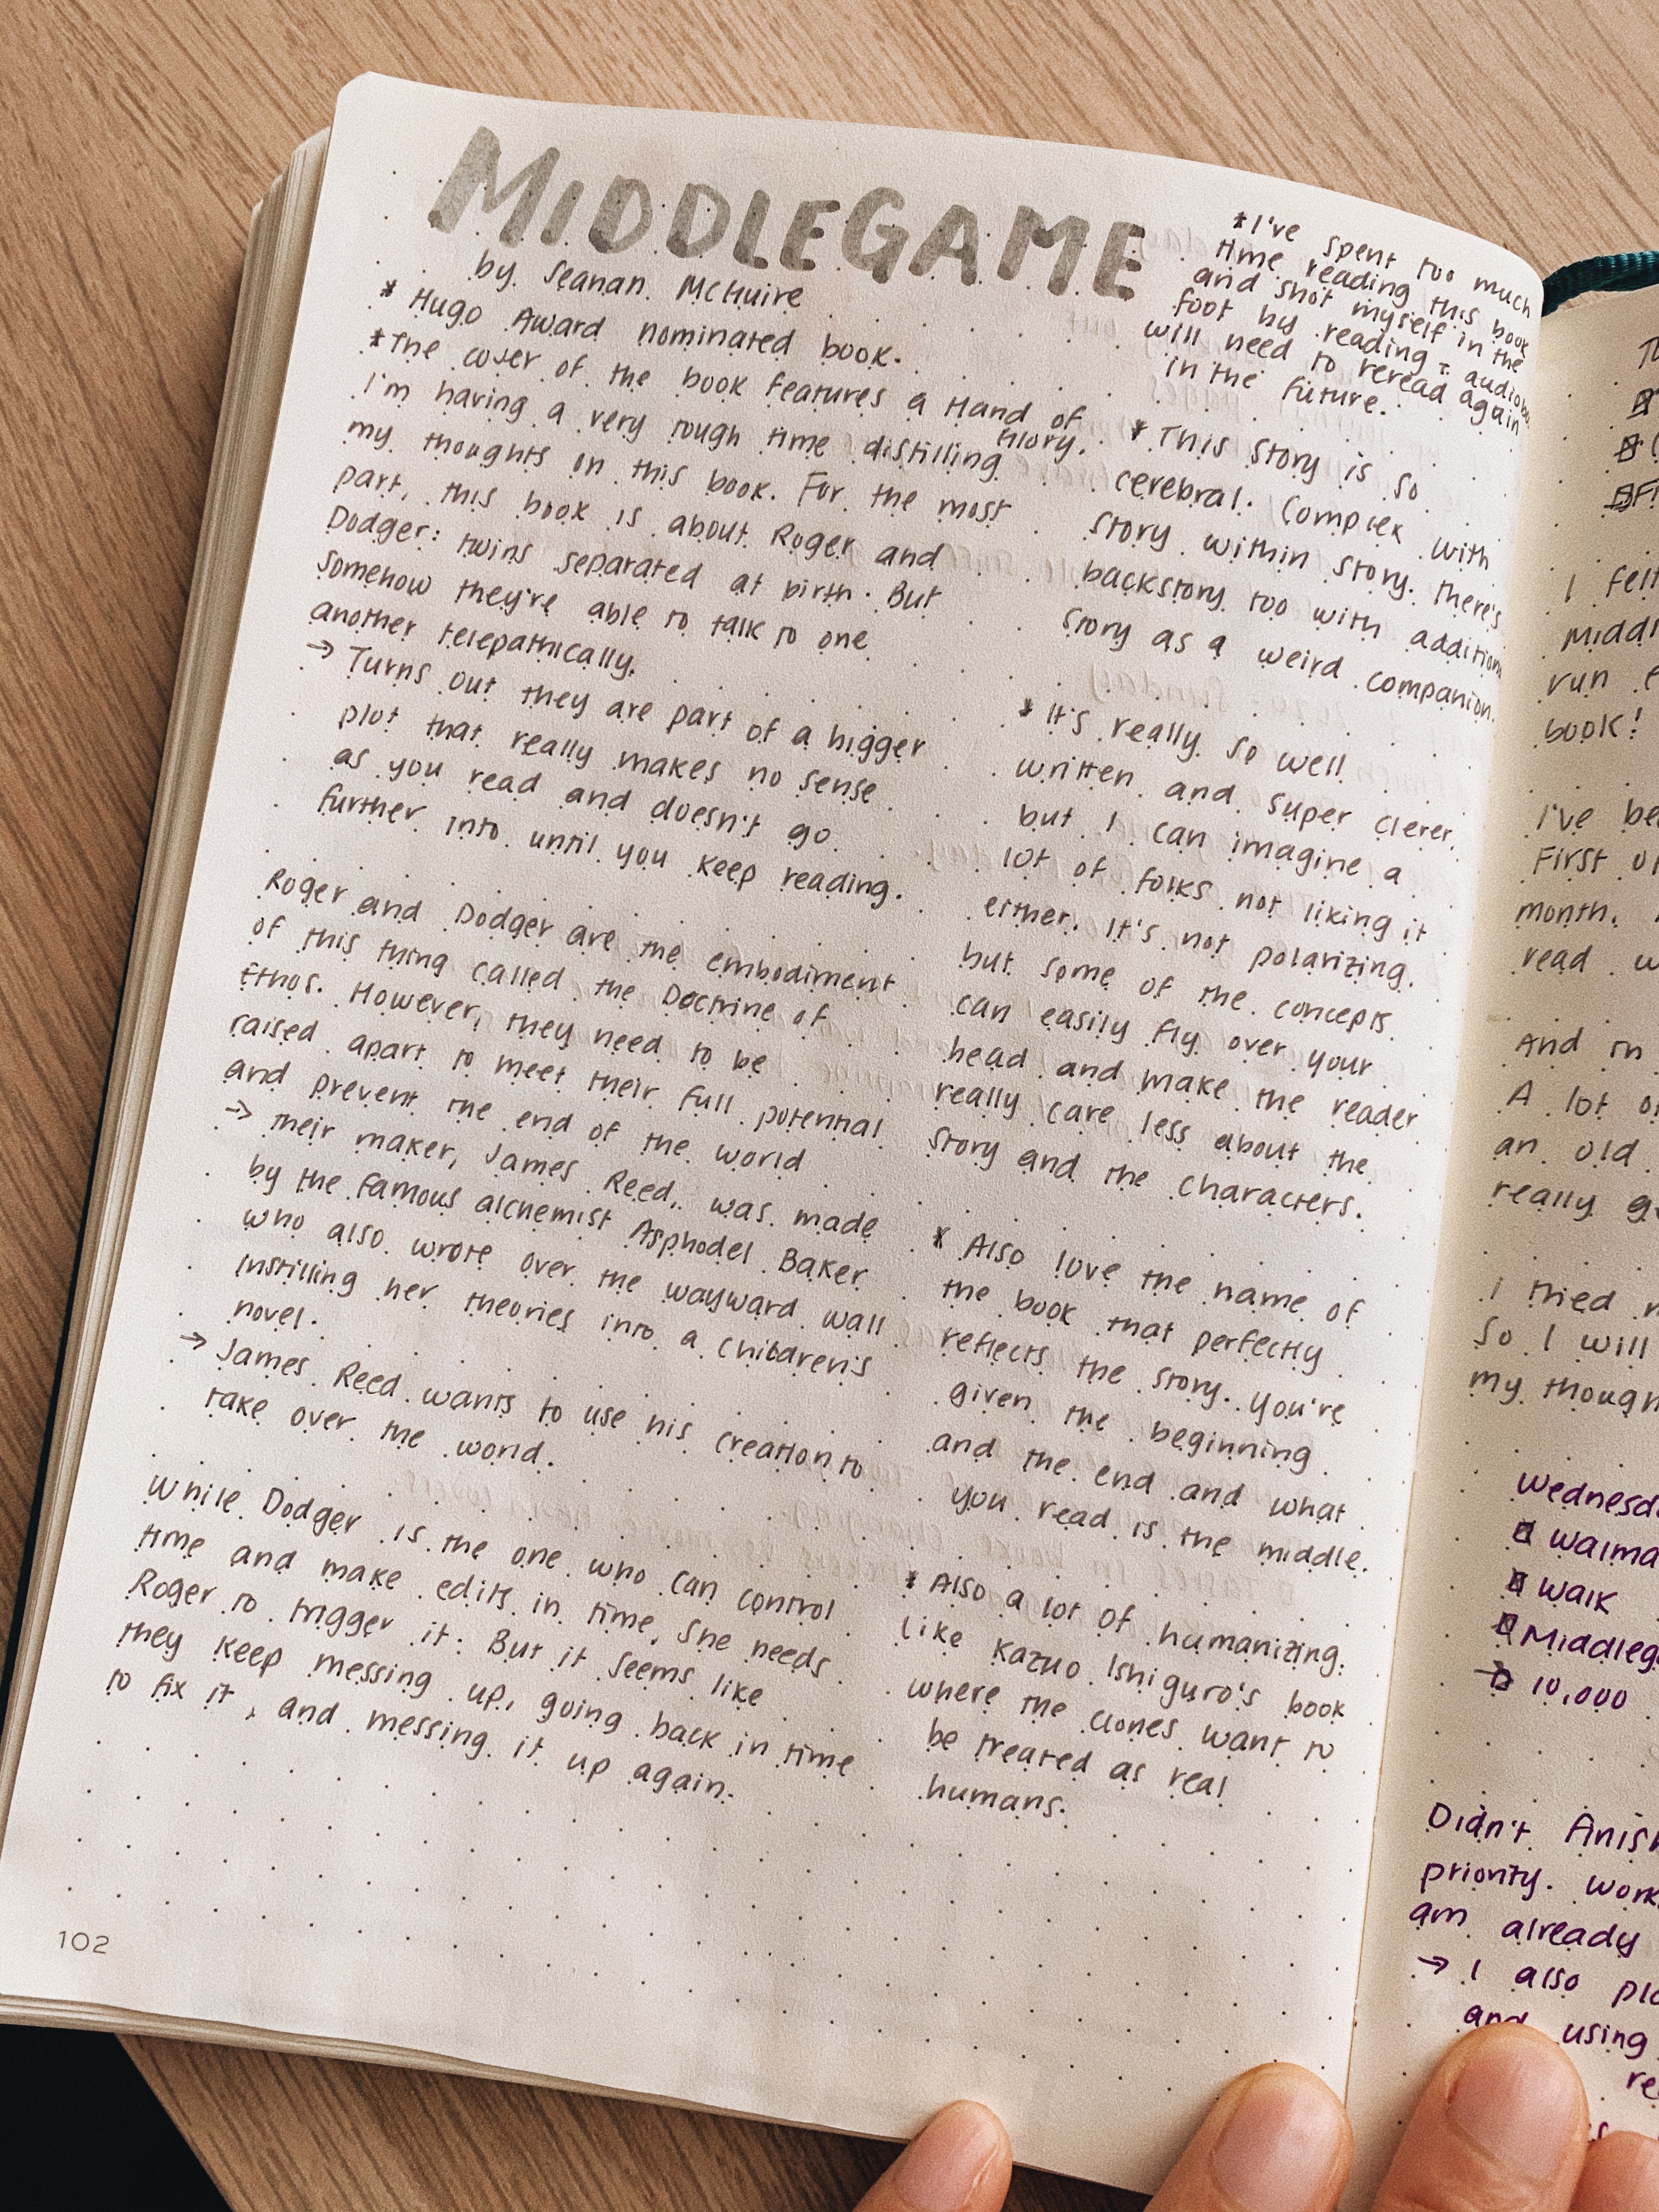 MIDDLEGAME
by Seanan McGuire
* Hugo Award nominated book.
* The cover of the book features a Hand of
Glory.
I'm having a very rough time distilling
my thoughts on this book. For the most
part, this book is about Roger and
Dodger: twins separated at birth. But
somehow they're able to talk to one
another telepathically.
→ Turns out they are part of a bigger
plot that really makes no sense
as you read and doesn't go
further into until you keep reading.
Roger and Dodger are the embodiment
of this thing called the Doctrine of
Ethos. However, they need to be
raised apart to meet their full potential
and prevent the end of the world
→ Their maker, James Reed, was made
by the famous alchemist Asphodel Baker
who also wrote over the wayward wall
instilling her theories into a children's
novel.
→ James Reed wants to use his creation to
take over the world.
While Dodger is the one who can control
time and make edits in time, she needs
Roger to trigger it. But it seems like
they keep messing up, going back in time
to fix it, and messing it up again.
* I've spent too much
time reading this book
and shot myself in the
foot by reading
will need to reread again
in the future.
* This story is so
cerebral. Complex with
story within story. There's
backstory too with addition
story as a weird companion.
* It's really so well
written and super clerer,
but I can imagine a
lot of folks not liking it
either. It's not polarizing.
but some of the concepts
can easily fly over your
head and make the reader
really care less about the
story and the characters.
* Also love the name of
the book that perfectly
reflects the story. You're
given the beginning
and the end and what
you read is the middle.
* Also a lot of humanizing.
like Kazuo Ishiguro's book
where the clones want to
be treated as real
humans.
102
I felt
Middl
run
book!
I've be
First o
month.
read w
And in
A lot o
an old
really g
I tried
So I will
my though
Wednesd
Waima
Walk
Middleg
→ 10,000
Didn't finish
priority. Work
am already
→ I also pl
and using
re